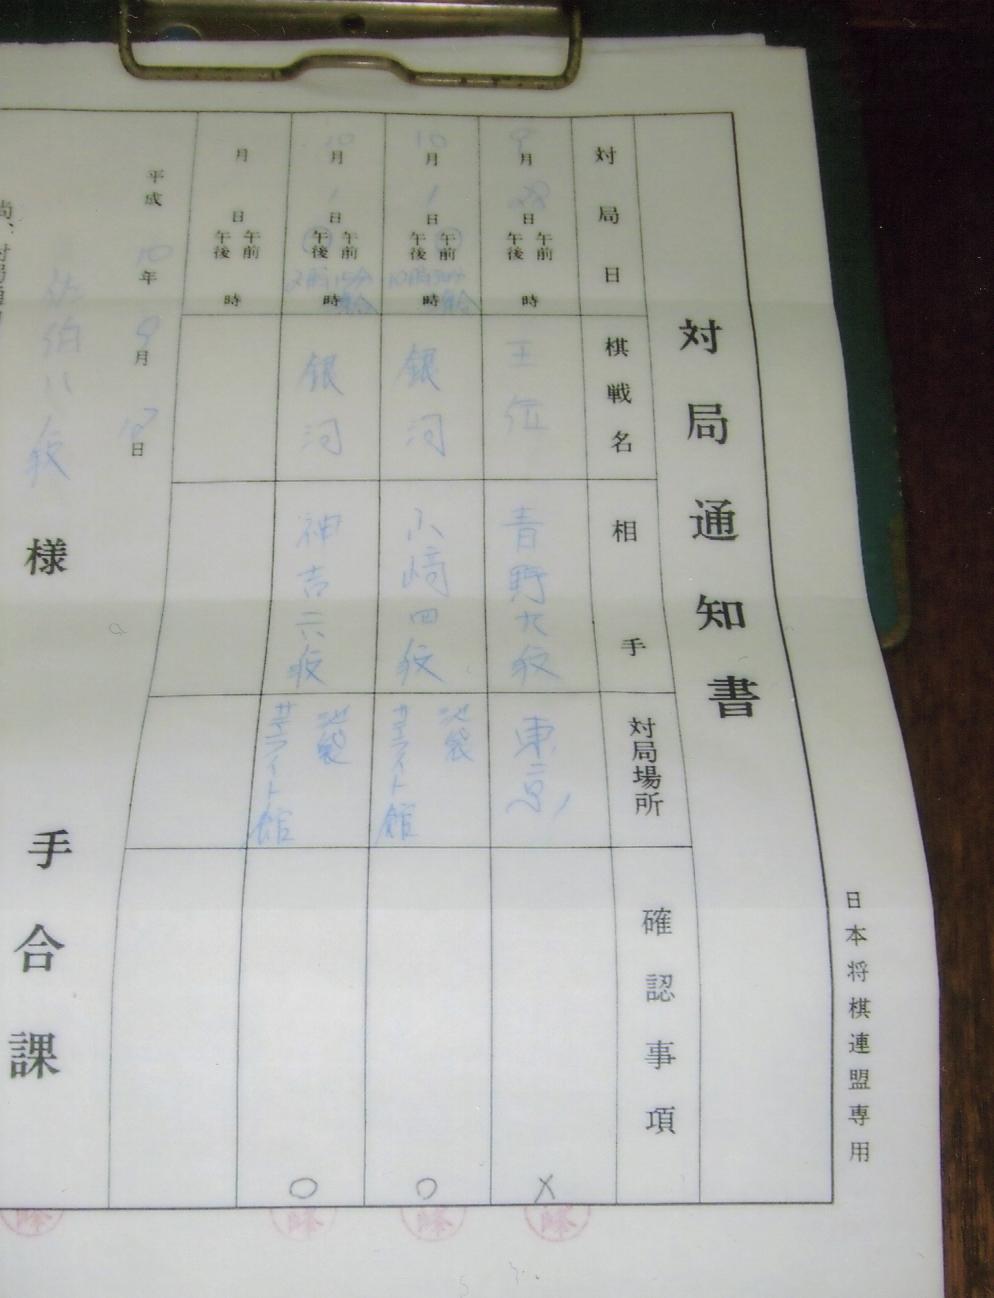 日本将棋連盟専用
対局通知書
対局日 棋戦名 相手 対局場所 確認事項
9月28日 午前 午後 時 王位 青野九段 東京 ×
10月1日 午前 午後 10時30分 集合 時 銀河 山崎四段 池袋 サテライト館 ○
10月1日 午前 午後 2時15分 集合 時 銀河 神吉六段 池袋 サテライト館 ○
月 日 午前 午後 時
平成10年9月 日
佐伯八段 様 手合課
尚、対局